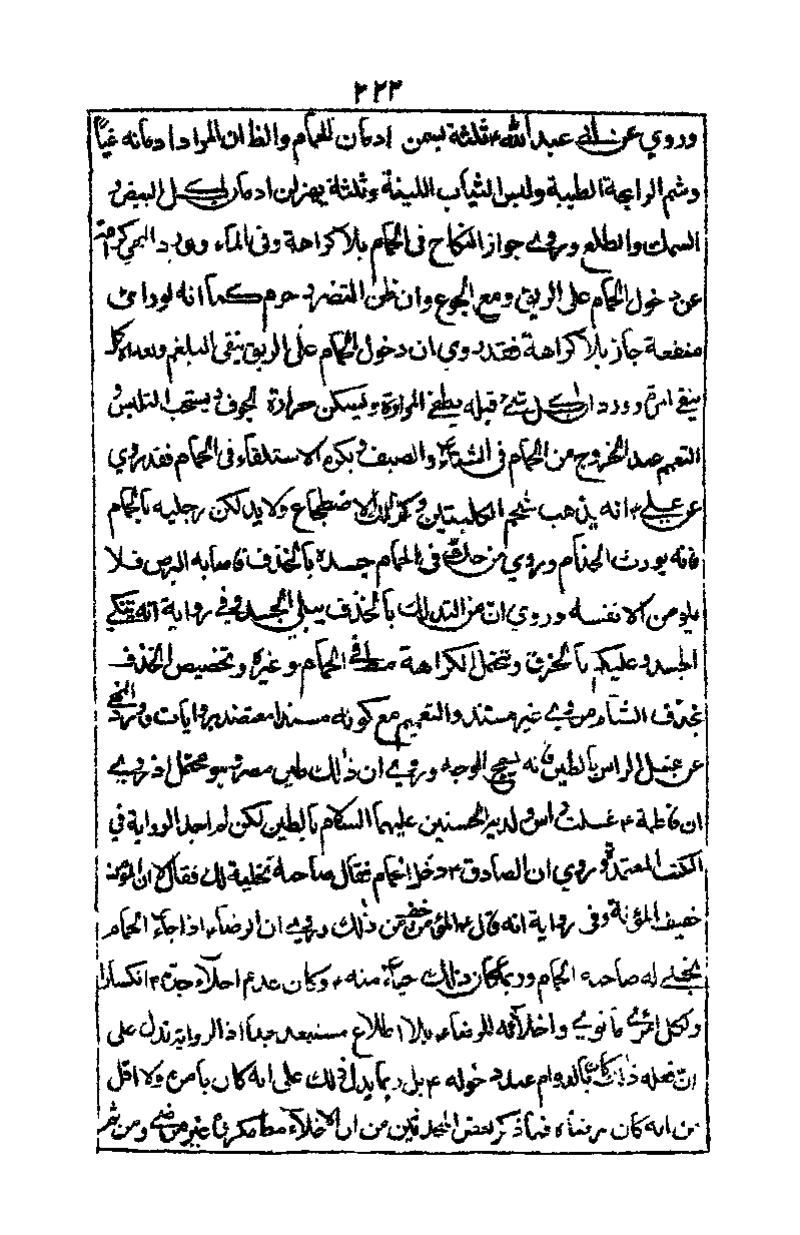 ٢٢٣
وروي عن ابي عبد الله ٤ ثلثة يسمن ادمان الحمام والظ ان المراد ادمانه غبّاً
وشم الرايحة الطيبة ولبس الثياب اللينة وثلثة يهزلن ادمان اكل البيض و
السمك والطلع وروي جواز النكاح في الحمام بلا كراهة وفي الماء وورد النهي كراهة
عن دخول الحمام على الريق ومع الجوع وان ظن التضرر حرم كما انه لو دائ
منفعة جاز بلا كراهة فقد روي ان دخول الحمام على الريق ينقى البلغم وبعد الاكل
ينقي المرة وورد ان اكل شئ قبله يطفئ المرارة ويسكن حرارة الجوف ويستحب التلبس و
التعمم عند الخروج من الحمام في الشتاء والصيف ويكره الاستلقاء في الحمام فقد روي
عن علي ٤ انه يذهب شحم الكليتين وكذلك الاضطجاع ولا يدلكن رجليه بالحمام
فانه يورث الجذام وروي من حك في الحمام جسده بالخذف فاصابه البرص فلا
يلومن الا نفسه وروي ان من التدلك بالخذف يبلي الجسد وفي رواية انه ينكي
الجسد وعليكم بالخرق وتتمل الكراهة مط في الحمام وغيره وتخصيص الخذف
بخذف الشام مروي غير مستند والتعميم مع كونه مسندا معتضد بروايات وورد النهي
عن غسل الراس بالطين فانه يسمج الوجه وروي ان ذلك طين مصر وهو محتمل اذ روي
ان فاطمة ٤ غسلت راس ولديها الحسنين عليهما السلام بالطين لكن لم اجد الرواية في
الكتب المعتمدة وروي ان الصادق ٤ دخل الحمام فقال صاحبه نخليه لك فقال لا ان المؤمن
خفيف المؤنة وفى رواية انه قال ٤ المؤمن اخف من ذلك وروي ان الرضا ٤ اذا جاء الحمام
يخلي له صاحب الحمام وربما كان ذلك حياء منه ٤ وكان عدم اخلاء جده ٤ انكسارا
ولكل امرئ مانوى واخلائه للرضا ٤ بلا اطلاع مستبعد جدا اذ الرواية تدل على
ان فعله ذلك كان بالدوام عند دخوله ٤ بل ربما يدل ذلك على انه كان يأمره ولا اقل
من انه كان برضاه فما ذكر بعض المحدثين من ان الاخلاء مط مكروها غير مرضي ومن ثم